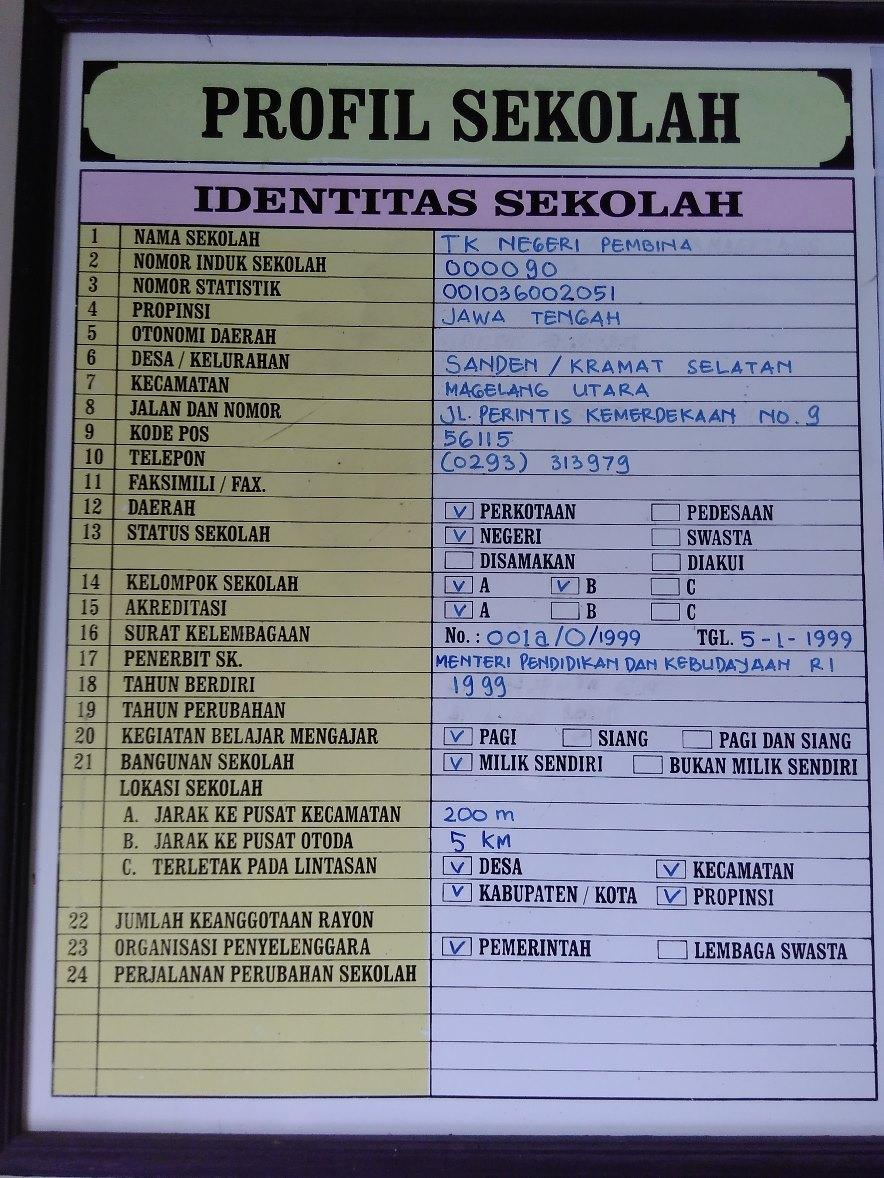 PROFIL SEKOLAH
IDENTITAS SEKOLAH
1 NAMA SEKOLAH TK NEGERI PEMBINA
2 NOMOR INDUK SEKOLAH 000090
3 NOMOR STATISTIK 001036002051
4 PROPINSI JAWA TENGAH
5 OTONOMI DAERAH
6 DESA / KELURAHAN SANDEN / KRAMAT SELATAN
7 KECAMATAN MAGELANG UTARA
8 JALAN DAN NOMOR JL. PERINTIS KEMERDEKAAN NO. 9
9 KODE POS 56115
10 TELEPON (0293) 313979
11 FAKSIMILI / FAX.
12 DAERAH V PERKOTAAN PEDESAAN
13 STATUS SEKOLAH V NEGERI SWASTA
DISAMAKAN DIAKUI
14 KELOMPOK SEKOLAH V A V B C
15 AKREDITASI V A B C
16 SURAT KELEMBAGAAN No. : 001a/O/1999 TGL. 5-1-1999
17 PENERBIT SK. MENTERI PENDIDIKAN DAN KEBUDAYAAN RI
18 TAHUN BERDIRI 1999
19 TAHUN PERUBAHAN
20 KEGIATAN BELAJAR MENGAJAR V PAGI SIANG PAGI DAN SIANG
21 BANGUNAN SEKOLAH V MILIK SENDIRI BUKAN MILIK SENDIRI
LOKASI SEKOLAH
A. JARAK KE PUSAT KECAMATAN 200 m
B. JARAK KE PUSAT OTODA 5 KM
C. TERLETAK PADA LINTASAN V DESA V KECAMATAN
V KABUPATEN / KOTA V PROPINSI
22 JUMLAH KEANGGOTAAN RAYON
23 ORGANISASI PENYELENGGARA V PEMERINTAH LEMBAGA SWASTA
24 PERJALANAN PERUBAHAN SEKOLAH